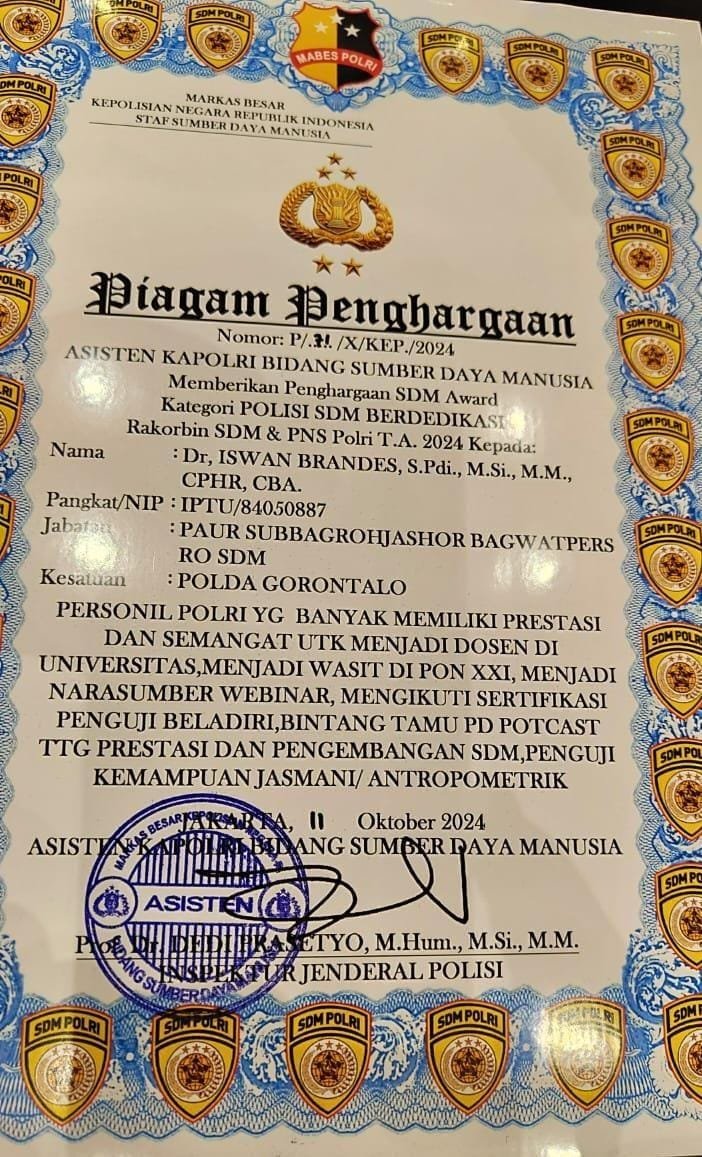 MABES POLRI
MARKAS BESAR
KEPOLISIAN NEGARA REPUBLIK INDONESIA
STAF SUMBER DAYA MANUSIA
Piagam Penghargaan
Nomor: P/.21./X/KEP./2024
ASISTEN KAPOLRI BIDANG SUMBER DAYA MANUSIA
Memberikan Penghargaan SDM Award
Kategori POLISI SDM BERDEDIKASI
Rakorbin SDM & PNS Polri T.A. 2024 Kepada:
Nama : Dr, ISWAN BRANDES, S.Pdi., M.Si., M.M.,
CPHR, CBA.
Pangkat/NIP : IPTU/84050887
Jabatan : PAUR SUBBAGROHJASHOR BAGWATPERS
RO SDM
Kesatuan : POLDA GORONTALO
PERSONIL POLRI YG BANYAK MEMILIKI PRESTASI
DAN SEMANGAT UTK MENJADI DOSEN DI
UNIVERSITAS,MENJADI WASIT DI PON XXI, MENJADI
NARASUMBER WEBINAR, MENGIKUTI SERTIFIKASI
PENGUJI BELADIRI,BINTANG TAMU PD POTCAST
TTG PRESTASI DAN PENGEMBANGAN SDM,PENGUJI
KEMAMPUAN JASMANI/ ANTROPOMETRIK
JAKARTA, 11 Oktober 2024
ASISTEN KAPOLRI BIDANG SUMBER DAYA MANUSIA
ASISTEN
BIDANG SUMBER DAYA MANUSIA
Prof. Dr. DEDI PRASETYO, M.Hum., M.Si., M.M.
INSPEKTUR JENDERAL POLISI
SDM POLRI
SDM POLRI
SDM POLRI
SDM POLRI
SDM POLRI